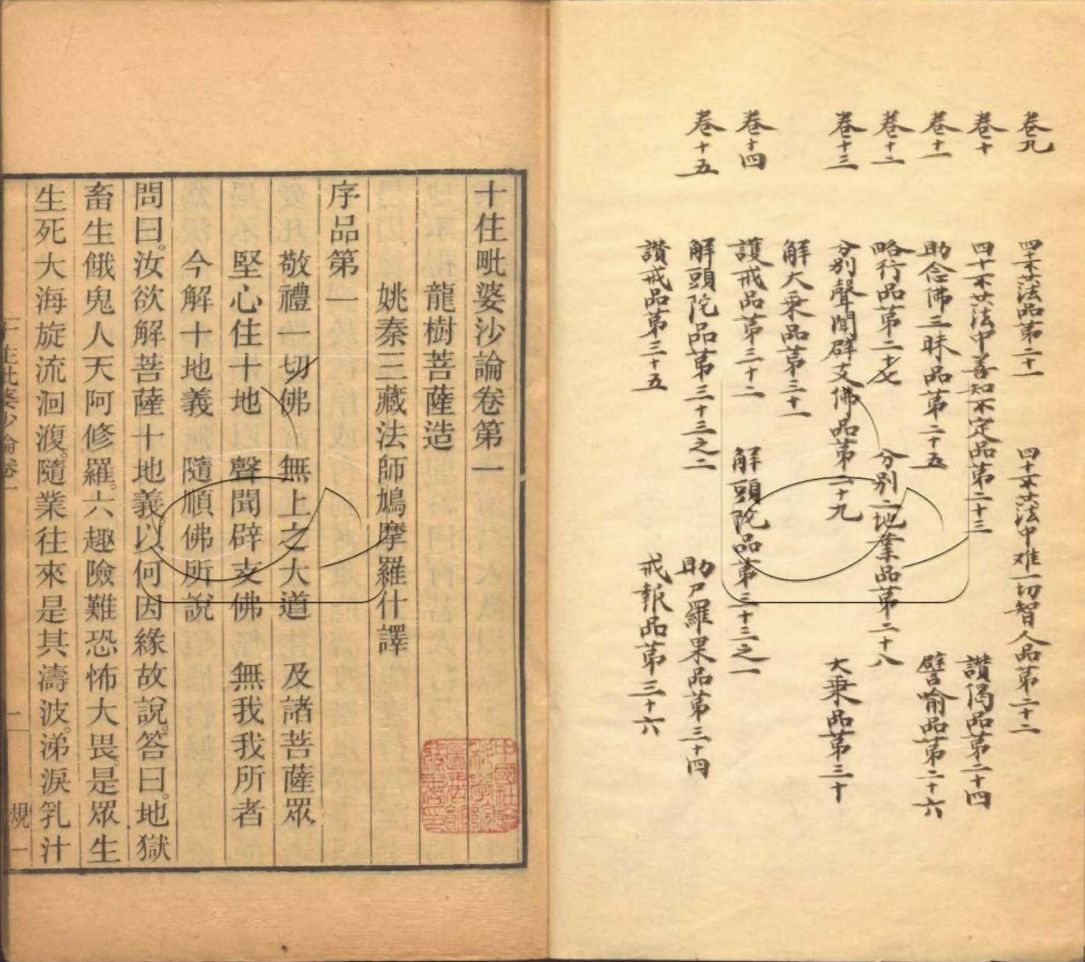 卷九 四十不共法品第二十一 四十不共法中难一切智人品第二十二
卷十 四十不共法中善知不定品第二十三 讚偈品第二十四
卷十一 助念佛三昧品第二十五 譬喻品第二十六
卷十二 略行品第二十七 分别二地業品第二十八
卷十三 分别聲聞辟支佛品第二十九 大乘品第三十
解大乘品第三十一
卷十四 護戒品第三十二 解頭陀品第三十三之一
卷十五 解頭陀品第三十三之二 助尸羅果品第三十四
讚戒品第三十五 戒報品第三十六
十住毗婆沙論卷第一
龍樹菩薩造
姚秦三藏法師鳩摩羅什譯
序品第一
敬禮一切佛 無上之大道 及諸菩薩眾
堅心住十地 聲聞辟支佛 無我我所者
今解十地義 隨順佛所說
問曰。汝欲解菩薩十地義以何因緣故說。答曰。地獄
畜生餓鬼人天阿修羅。六趣險難恐怖大畏。是眾生
生死大海旋流洄澓。隨業往來是其濤波。涕淚乳汁
十住毗婆沙論卷一 一 規一